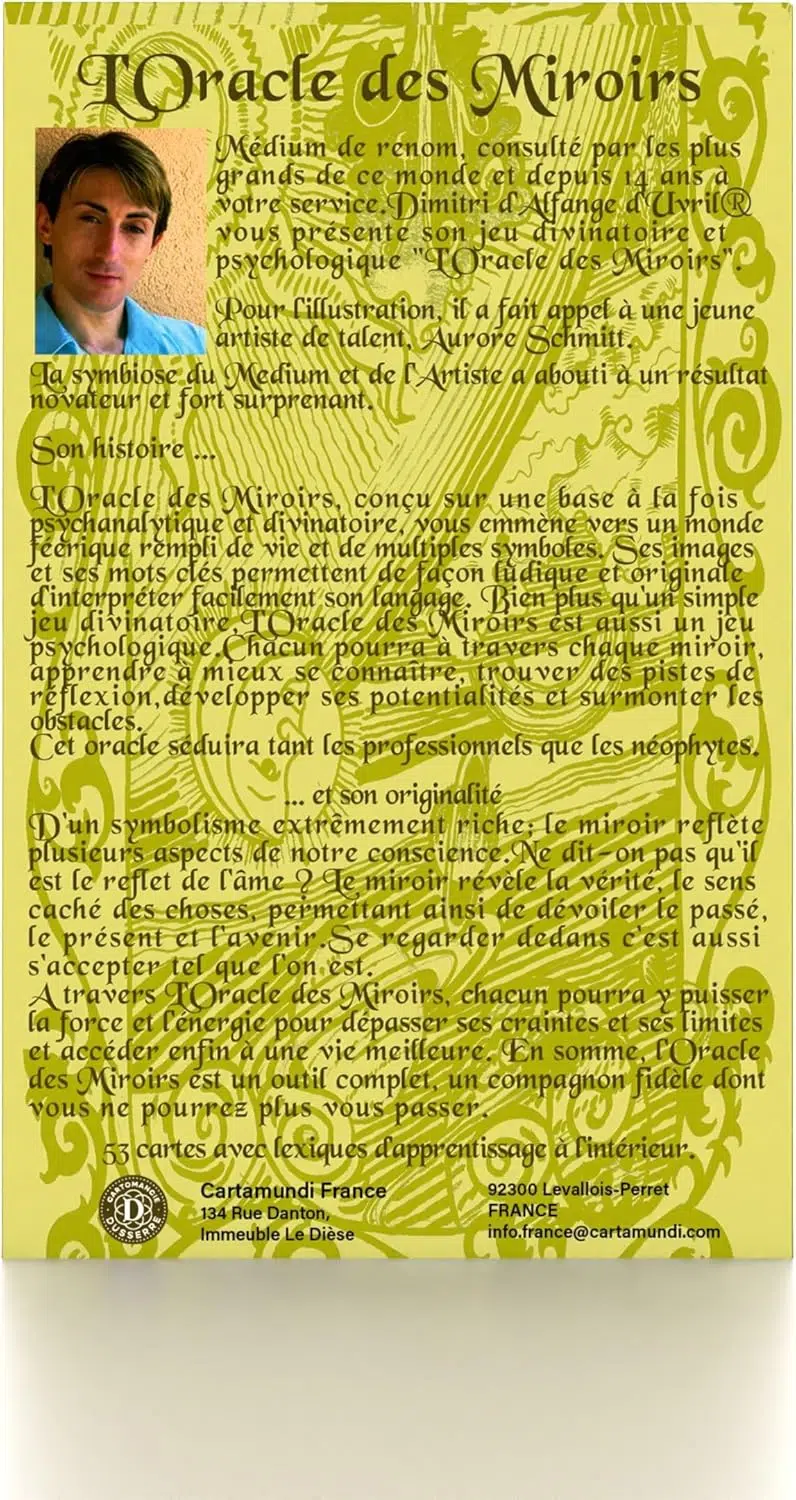 L'Oracle des Miroirs
Médium de renom, consulté par les plus
grands de ce monde et depuis 14 ans à
votre service.Dimitri d'Alfange d'Uvril®
vous présente son jeu divinatoire et
psychologique "L'Oracle des Miroirs".
Pour l'illustration, il a fait appel à une jeune
artiste de talent, Aurore Schmitt.
La symbiose du Medium et de l'Artiste a abouti à un résultat
novateur et fort surprenant.
Son histoire ...
L'Oracle des Miroirs, conçu sur une base à la fois
psychanalytique et divinatoire, vous emmène vers un monde
féerique rempli de vie et de multiples symboles. Ses images
et ses mots clés permettent de façon ludique et originale
d'interpréter facilement son langage. Bien plus qu'un simple
jeu divinatoire,L'Oracle des Miroirs est aussi un jeu
psychologique.Chacun pourra à travers chaque miroir,
apprendre à mieux se connaître, trouver des pistes de
réflexion,développer ses potentialités et surmonter les
obstacles.
Cet oracle séduira tant les professionnels que les néophytes.
... et son originalité
D'un symbolisme extrêmement riche; le miroir reflète
plusieurs aspects de notre conscience.Ne dit-on pas qu'il
est le reflet de l'âme ? Le miroir révèle la vérité, le sens
caché des choses, permettant ainsi de dévoiler le passé,
le présent et l'avenir.Se regarder dedans c'est aussi
s'accepter tel que l'on est.
A travers L'Oracle des Miroirs, chacun pourra y puisser
la force et l'énergie pour dépasser ses craintes et ses limites
et accéder enfin à une vie meilleure. En somme, l'Oracle
des Miroirs est un outil complet, un compagnon fidèle dont
vous ne pourrez plus vous passer.
53 cartes avec lexiques d'apprentissage à l'intérieur.
CARTOMANCIE
D
DUSSERRE
Cartamundi France
134 Rue Danton,
Immeuble Le Dièse
92300 Levallois-Perret
FRANCE
info.france@cartamundi.com